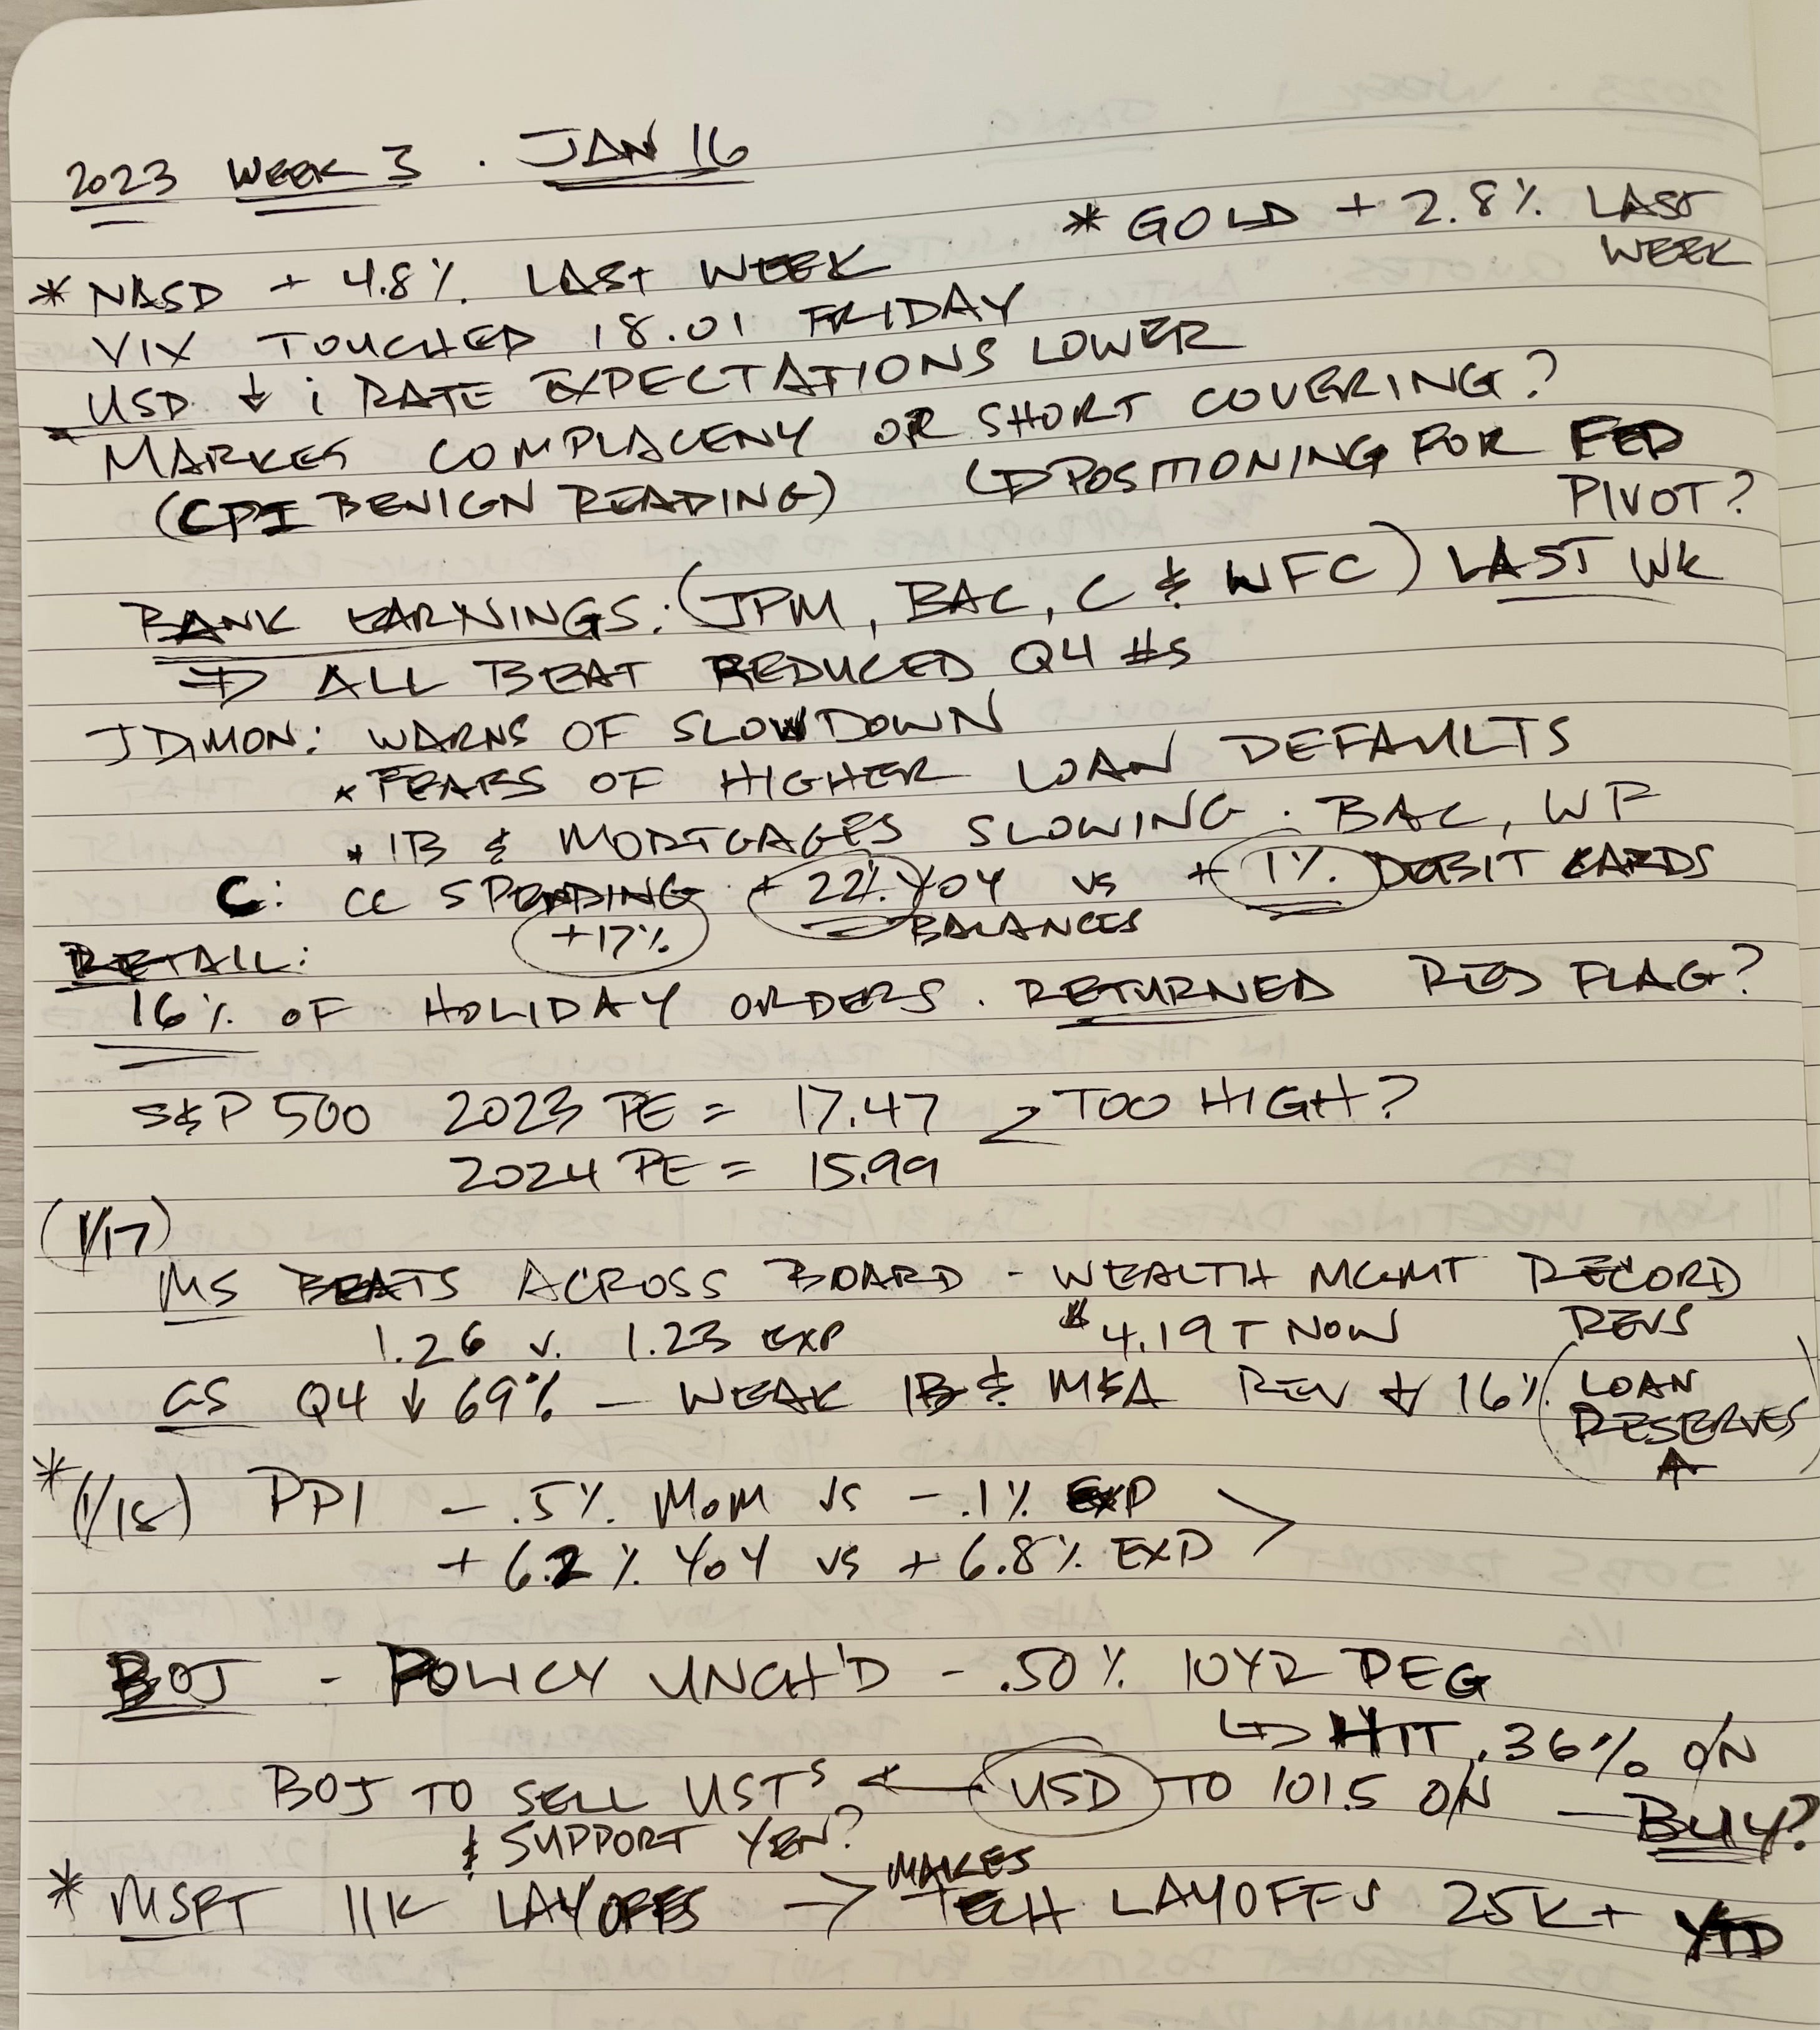 2023 WEEK 3 . JAN 16
* GOLD + 2.8% LAST
WEEK
* NASD + 4.8% LAST WEEK
VIX TOUCHED 18.01 FRIDAY
USD ↓ i RATE EXPECTATIONS LOWER
MARKES COMPLACENY OR SHORT COVERING?
(CPI BENIGN READING) ↳ POSITIONING FOR FED
PIVOT?
BANK EARNINGS: (JPM, BAC, C & WFC) LAST WK
⇒ ALL BEAT REDUCED Q4 #S
J DIMON: WARNS OF SLOWDOWN
* FEARS OF HIGHER LOAN DEFAULTS
* IB & MORTGAGES SLOWING . BAC, WF
C: CC SPENDING + 22% YOY vs + 1% DEBIT CARDS
+17% BALANCES
RETAIL:
16% OF HOLIDAY ORDERS . RETURNED RED FLAG?
S&P 500 2023 PE = 17.47 > TOO HIGH?
2024 PE = 15.99
(1/17)
MS BEATS ACROSS BOARD - WEALTH MGMT RECORD
REVS
1.26 v. 1.23 EXP $4.19T NOW
GS Q4 ↓ 69% - WEAK IB & M&A REV ↓ 16% (LOAN
RESERVES ↑)
* (1/18) PPI - .5% MoM vs - .1% EXP >
+ 6.2% YoY vs + 6.8% EXP
BOJ - POLICY UNCH'D - .50% 10YR PEG
↳ HIT .36% O/N
BOJ TO SELL USTS ← USD TO 101.5 O/N - BUY?
& SUPPORT YEN?
* MSFT 11K LAYOFFS → MAKES TECH LAYOFFS 25K+ YTD